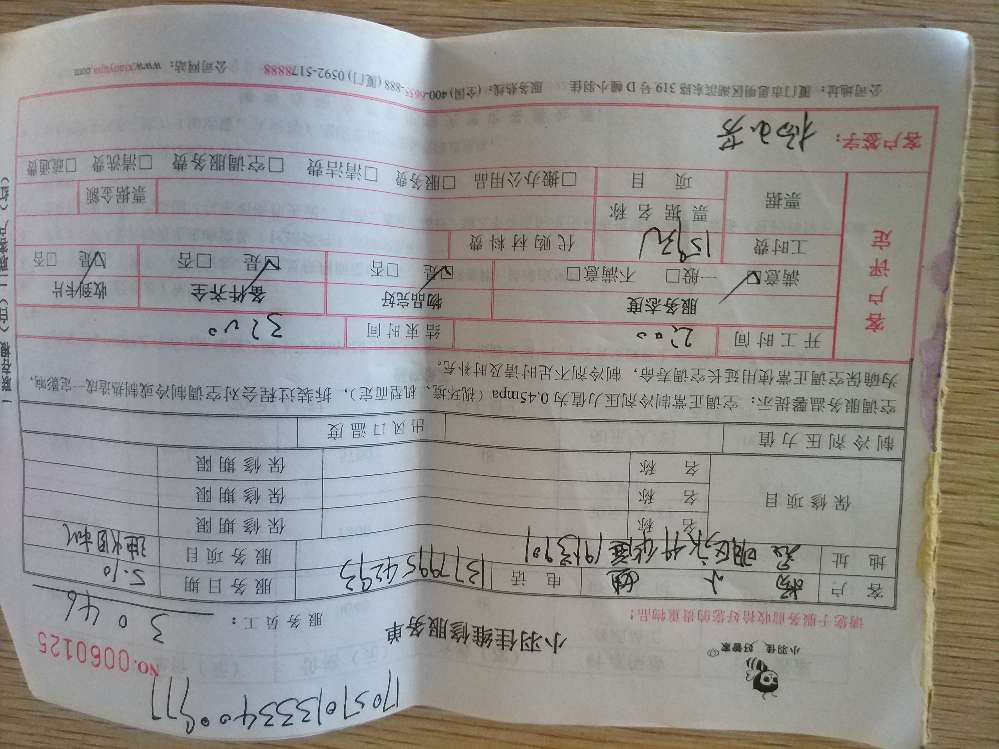 1705701333400977
NO.0060125
小羽佳，好管家
小羽佳维修服务单
服务员工：3046
请您于服务前收拾好您的贵重物品！
客户 杨小姐 电话 13779954293 服务日期 5.10
地址 服务项目 油烟机
保修项目 名称 保修期限
名称 保修期限
名称 保修期限
制冷剂压力值 出风口温度
空调服务温馨提示：空调正常制冷剂压力值为0.45mpa（视环境、机型而定），拆装过程会对空调制冷或制热造成一定影响，
为确保空调正常使用延长空调寿命，制冷剂不足时请及时补充。
客户评定
开工时间 2:00 结束时间 3:00
服务态度 物品完好 备件齐全 收到卡片
满意 一般 不满意 是 否 是 否 是 否
工时费 159元 代购材料费
票据 票据名称 票据金额
项目 搬办公用品 服务费 清洁费 空调服务费 清洗费 疏通费
客户签字：杨小芳
公司地址：厦门市思明区湖滨东路319号D幢小羽佳 服务热线：(全国)400-6655-888 (厦门)0592-5178888 公司网站：www.xiaoyujia.com
一联存根（白）二联客户（红）